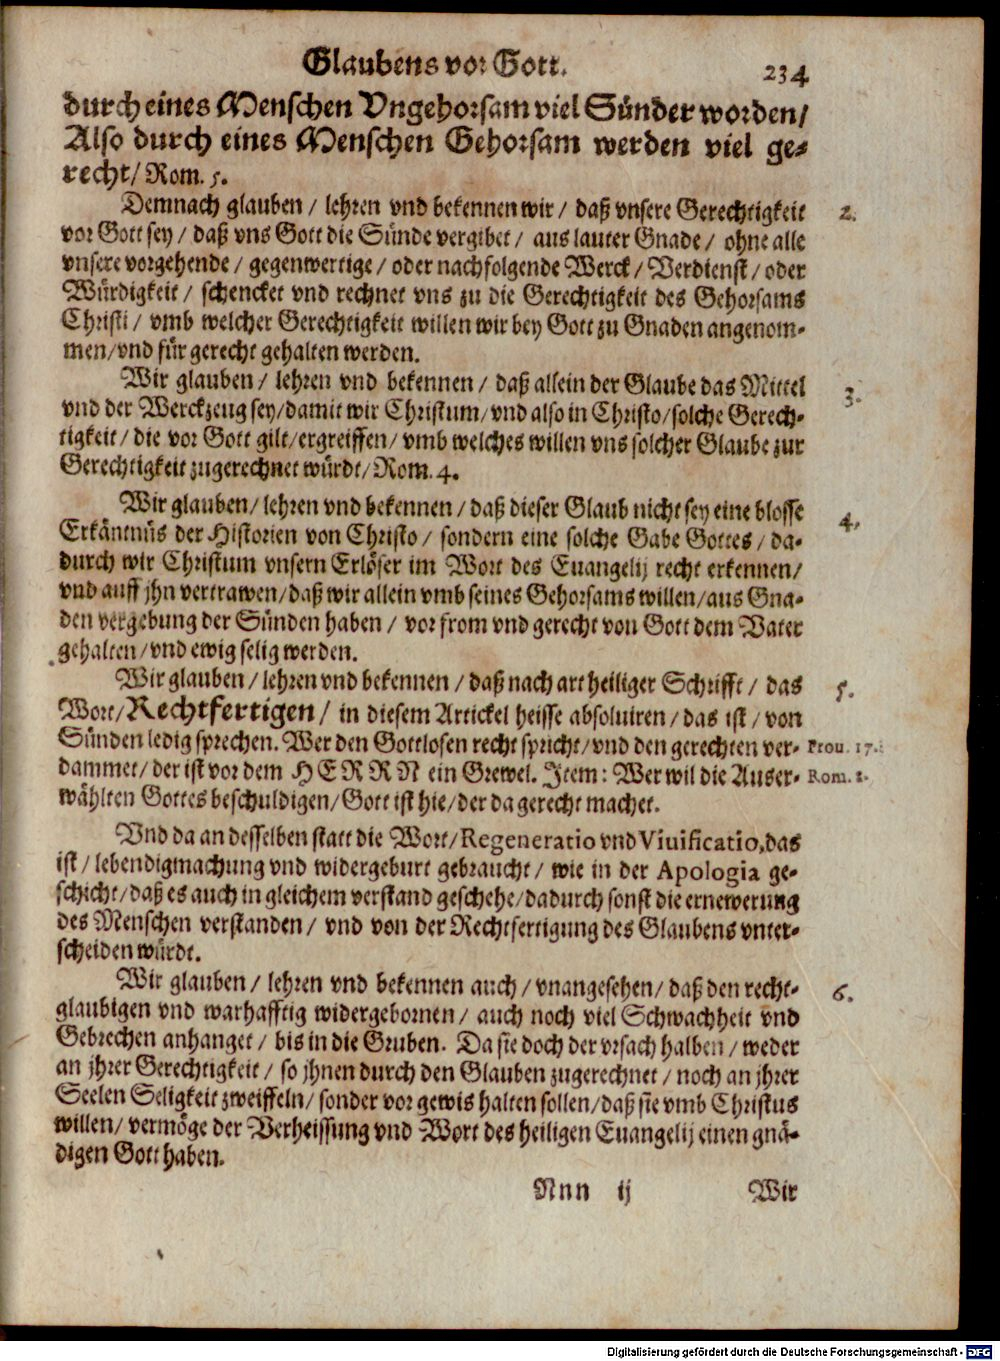 Glaubens vor Gott. 234
durch eines Menschen Vngehorsam viel Sünder worden/
Also durch eines Menschen Gehorsam werden viel ge-
recht/ Rom. 5.
Demnach glauben / lehren vnd bekennen wir / daß vnsere Gerechtigkeit 2.
vor Gott sey / daß vns Gott die Sünde vergibet / aus lauter Gnade / ohne alle
vnsere vorgehende / gegenwertige / oder nachfolgende Werck / Verdienst / oder
Würdigkeit / schencket vnd rechnet vns zu die Gerechtigkeit des Gehorsams
Christi / vmb welcher Gerechtigkeit willen wir bey Gott zu Gnaden angenom-
men/vnd für gerecht gehalten werden.
Wir glauben / lehren vnd bekennen / daß allein der Glaube das Mittel 3.
vnd der Werckzeug sey/damit wir Christum/vnd also in Christo/solche Gerech-
tigkeit / die vor Gott gilt/ergreiffen/ vmb welches willen vns solcher Glaube zur
Gerechtigkeit zugerechnet würdt/Rom. 4.
Wir glauben/ lehren vnd bekennen / daß dieser Glaub nicht sey eine blosse 4.
Erkäntnüs der Historien von Christo / sondern eine solche Gabe Gottes / da-
durch wir Christum vnsern Erlöser im Wort des Euangelij recht erkennen/
vnd auff jhn vertrawen/daß wir allein vmb seines Gehorsams willen/aus Gna-
den vergebung der Sünden haben / vor from vnd gerecht von Gott dem Vater
gehalten/vnd ewig selig werden.
Wir glauben / lehren vnd bekennen / daß nach art heiliger Schrifft / das 5.
Wort/Rechtfertigen/ in diesem Artickel heisse absoluiren / das ist / von
Sünden ledig sprechen. Wer den Gottlosen recht spricht/vnd den gerechten ver- Prou. 17.
dammet/ der ist vor dem HERRN ein Grewel. Item: Wer wil die Auser- Rom. 8.
wählten Gottes beschuldigen/Gott ist hie/der da gerecht machet.
Vnd da an desselben statt die Wort/Regeneratio vnd Viuificatio, das
ist / lebendigmachung vnd widergeburt gebraucht / wie in der Apologia ge-
schicht/daß es auch in gleichem verstand geschehe/dadurch sonst die ernewerung
des Menschen verstanden / vnd von der Rechtfertigung des Glaubens vnter-
scheiden würdt.
Wir glauben / lehren vnd bekennen auch / vnangesehen/ daß den recht- 6.
glaubigen vnd warhafftig widergebornen / auch noch viel Schwachheit vnd
Gebrechen anhanget / bis in die Gruben. Da sie doch der vrsach halben / weder
an jhrer Gerechtigkeit / so jhnen durch den Glauben zugerechnet / noch an jhrer
Seelen Seligkeit zweiffeln/ sonder vor gewis halten sollen/daß sie vmb Christus
willen/ vermöge der Verheissung vnd Wort des heiligen Euangelij einen gnä-
digen Gott haben.
Nnn ij Wir
Digitalisierung gefördert durch die Deutsche Forschungsgemeinschaft - DFG